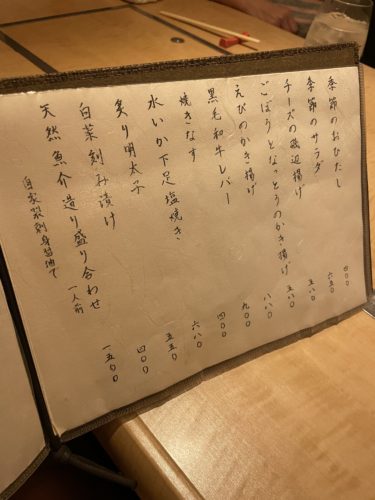 季節のおひたし 四〇〇
季節のサラダ 六五〇
チーズの磯辺揚げ 五八〇
ごぼうとなっとうのかき揚げ 五八〇
えびのかき揚げ 八八〇
黒毛和牛レバー 九〇〇
焼きなす 四〇〇
水いか下足塩焼き 六八〇
炙り明太子 五五〇
白菜刻み漬け 四〇〇
天然魚介造り盛り合わせ 一人前 一五〇〇
自家製刺身醤油で